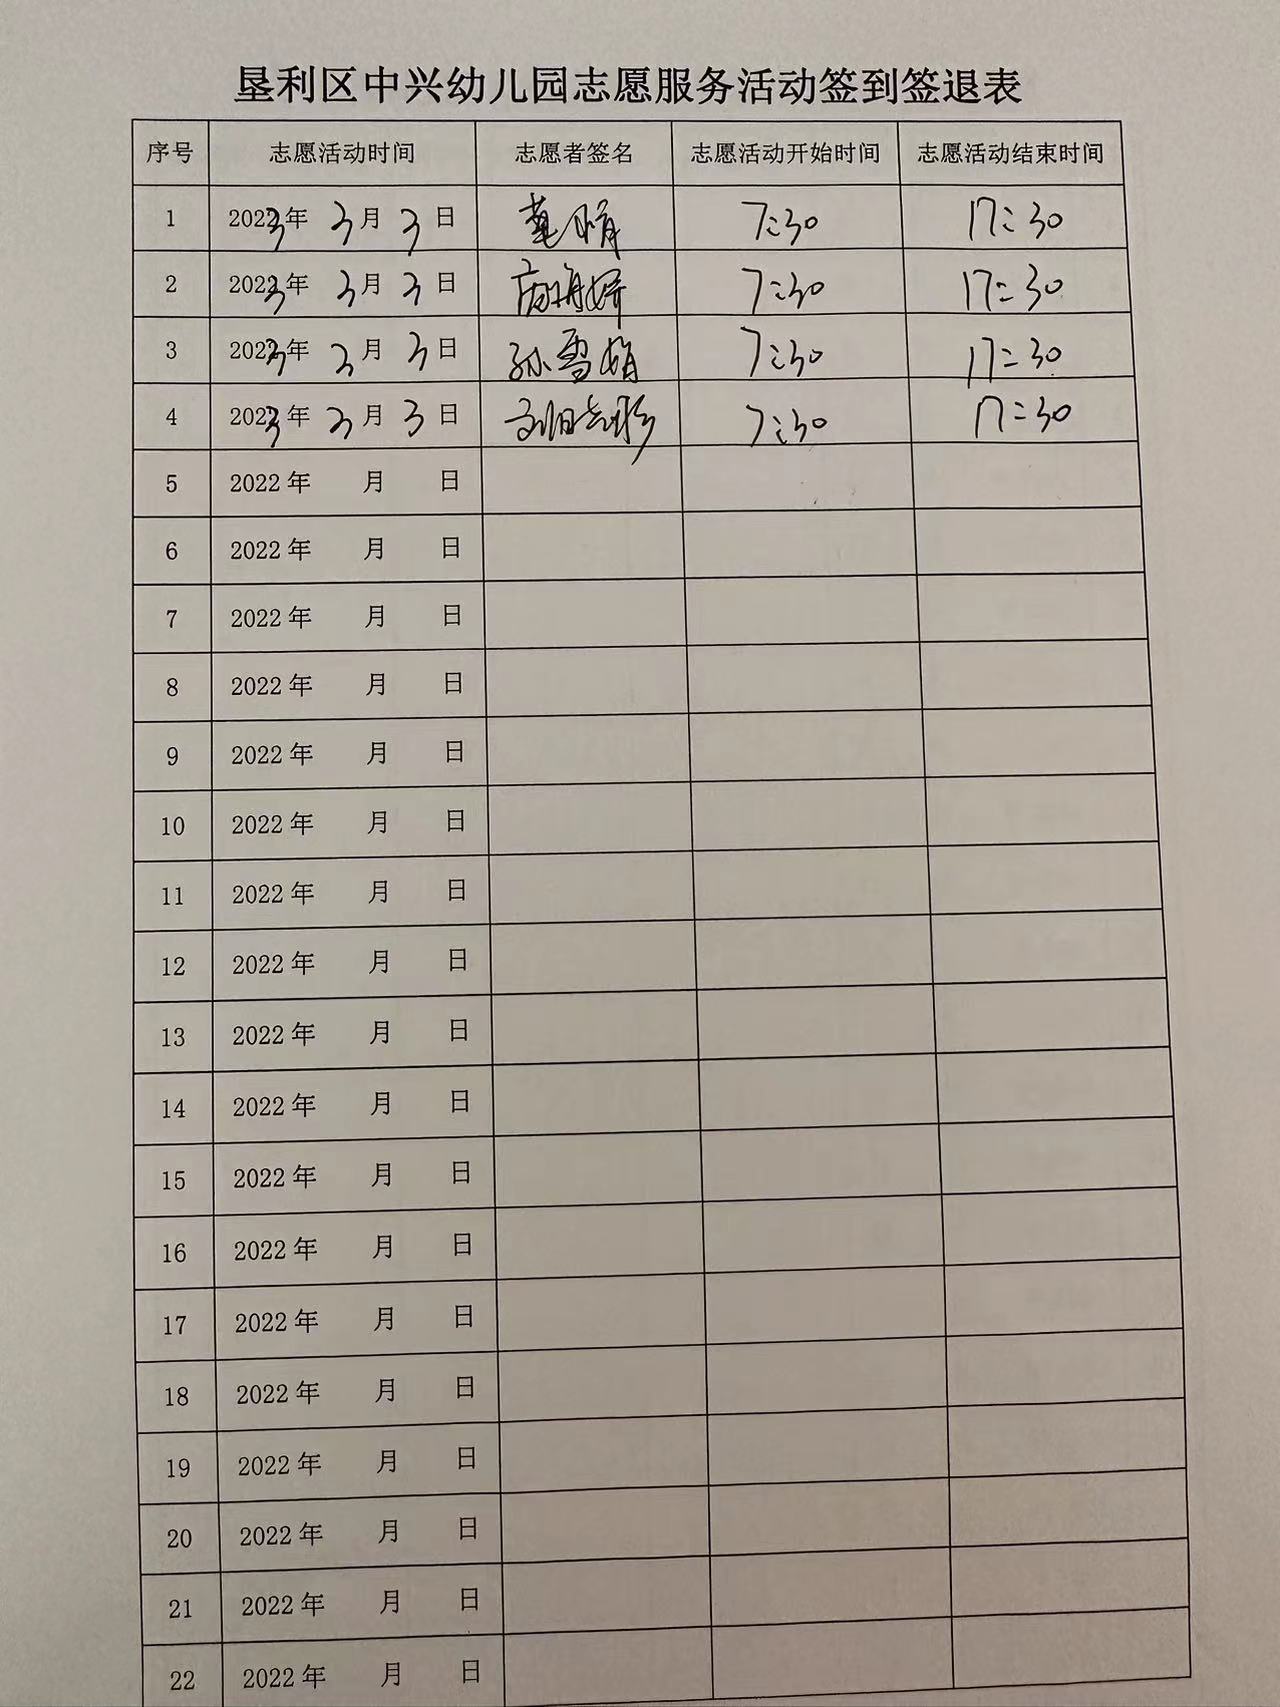 垦利区中兴幼儿园志愿服务活动签到签退表
序号 志愿活动时间 志愿者签名 志愿活动开始时间 志愿活动结束时间
1 2023年 3月 3日 7:30 17:30
2 2023年 3月 3日 7:30 17:30
3 2023年 3月 3日 孙雪娟 7:30 17:30
4 2023年 3月 3日 7:30 17:30
5 2022年 月 日
6 2022年 月 日
7 2022年 月 日
8 2022年 月 日
9 2022年 月 日
10 2022年 月 日
11 2022年 月 日
12 2022年 月 日
13 2022年 月 日
14 2022年 月 日
15 2022年 月 日
16 2022年 月 日
17 2022年 月 日
18 2022年 月 日
19 2022年 月 日
20 2022年 月 日
21 2022年 月 日
22 2022年 月 日